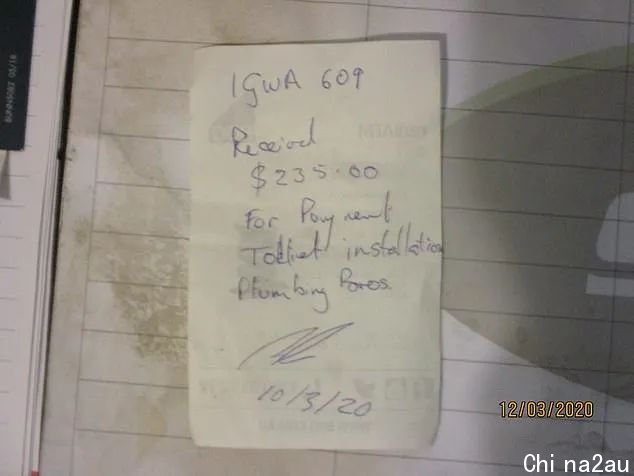 BUNNINGS® 05/18
IGWA 609
Received
$235.00
For Payment
Toilet installation
Plumbing Pares
10/3/20
12/03/2020
Chi na2au